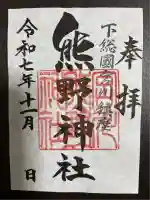 奉拝
下総國
鎮座
熊野神社
令和七年十一月 日